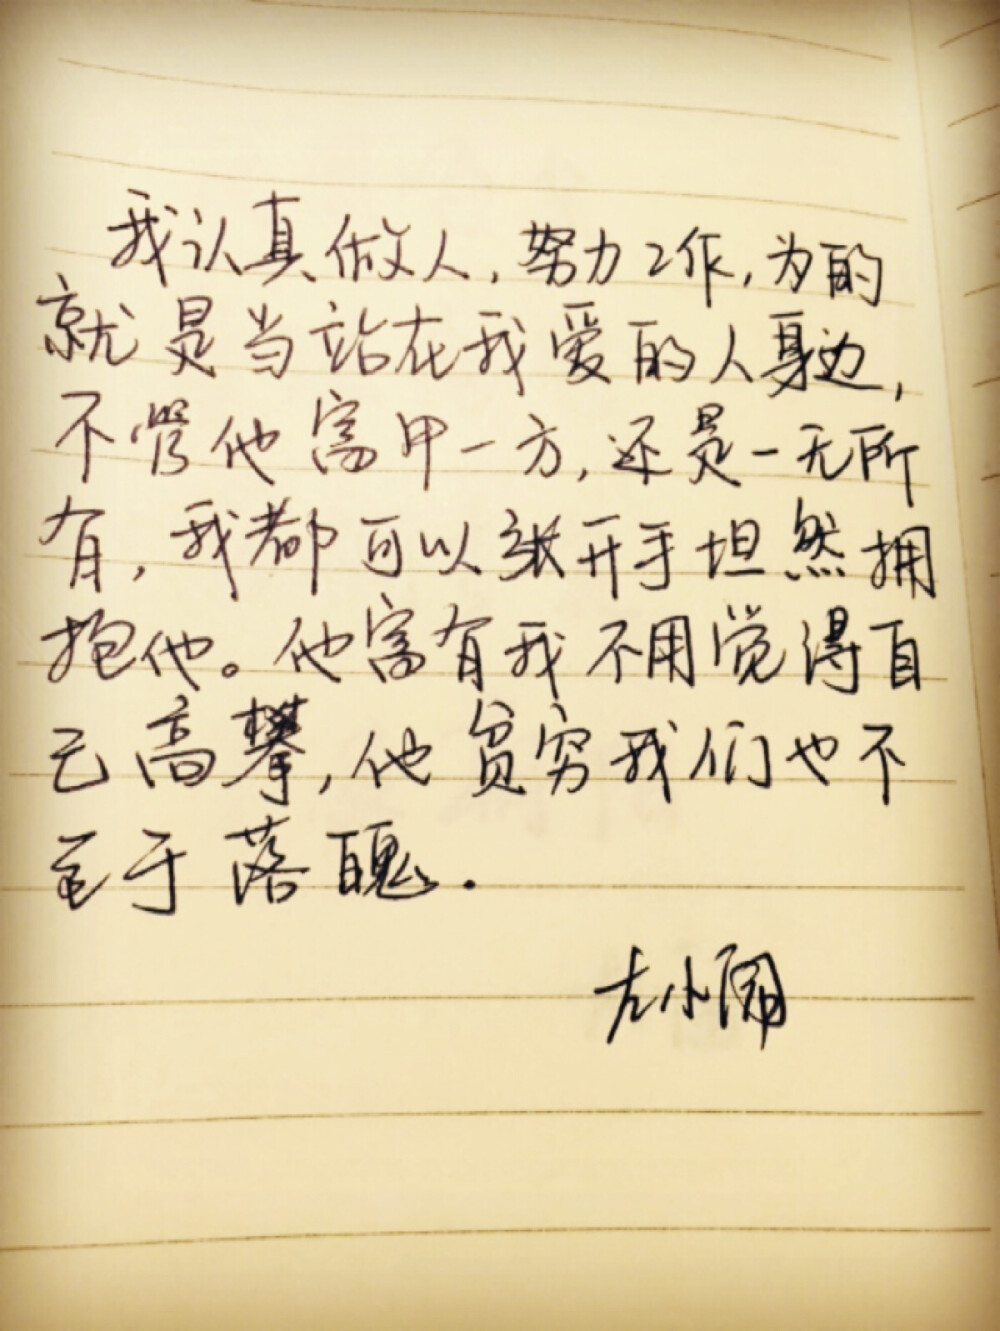 我认真做人,努力工作,为的
就是当站在我爱的人身边,
不管他富甲一方,还是一无所
有,我都可以张开手坦然拥
抱他。他富有我不用觉得自
己高攀,他贫穷我们也不
至于落魄.
左小闹